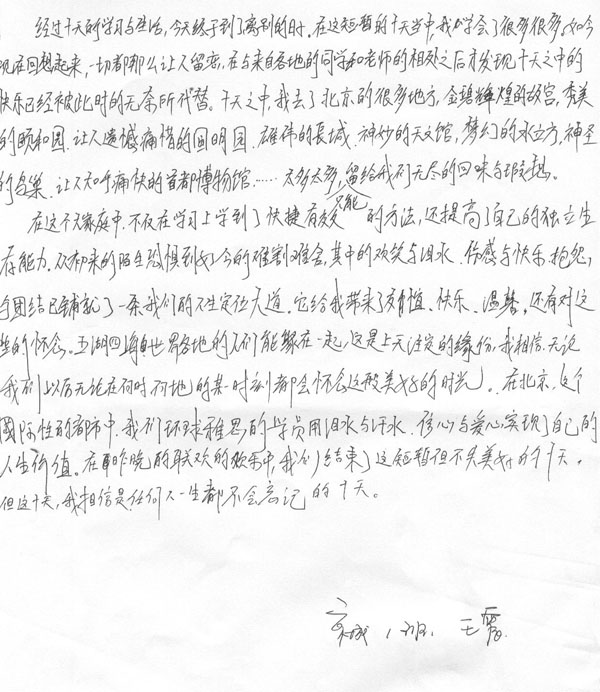 经过十天的学习与生活,今天终于到了离别的时。在这短暂的十天当中,我们学会了很多很多。如今
现在回想起来,一切都那么让人留恋,在与来自各地的同学和老师的相处之后才发现十天之中的
快乐已经被此时的无奈所代替。十天之中,我去了北京的很多地方,金碧辉煌的故宫,秀美
的颐和园,让人遗憾痛惜的圆明园、雄伟的长城、神妙的天文馆,梦幻的水立方,神圣
的鸟巢、让人知痛快的首都博物馆……太多太多,只能留给我们无尽的回味与遐想。
在这个大家庭中,不仅在学习上学到了快捷有效的方法,还提高了自己的独立生
存能力。从初来的陌生恐惧到如今的难割难舍,其中的欢笑与泪水、伤感与快乐,抱怨,
与团结已铺就了一条我们的人生定位大道。它给我带来了友谊、快乐、温馨,还有对这
些的怀念。五湖四海世界各地的人们能聚在一起,这是上天注定的缘份,我相信,无论
我们以后无论在何时何地的某一时刻都会怀念这段美好的时光。在北京,这个
国际性的都市中,我们环球雅思的学员用泪水与汗水、信心与爱心,实现了自己的
人生价值。在昨晚的联欢的欢乐中,我们结束了这短暂但不失美好的十天。
但这十天,我相信是任何人一生都不会忘记的十天。
京城1班 王